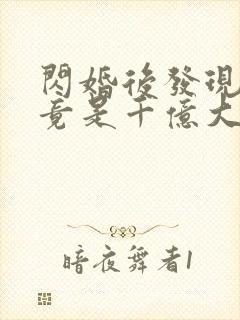 閃婚後發現
竟是千億大
暗夜舞者1